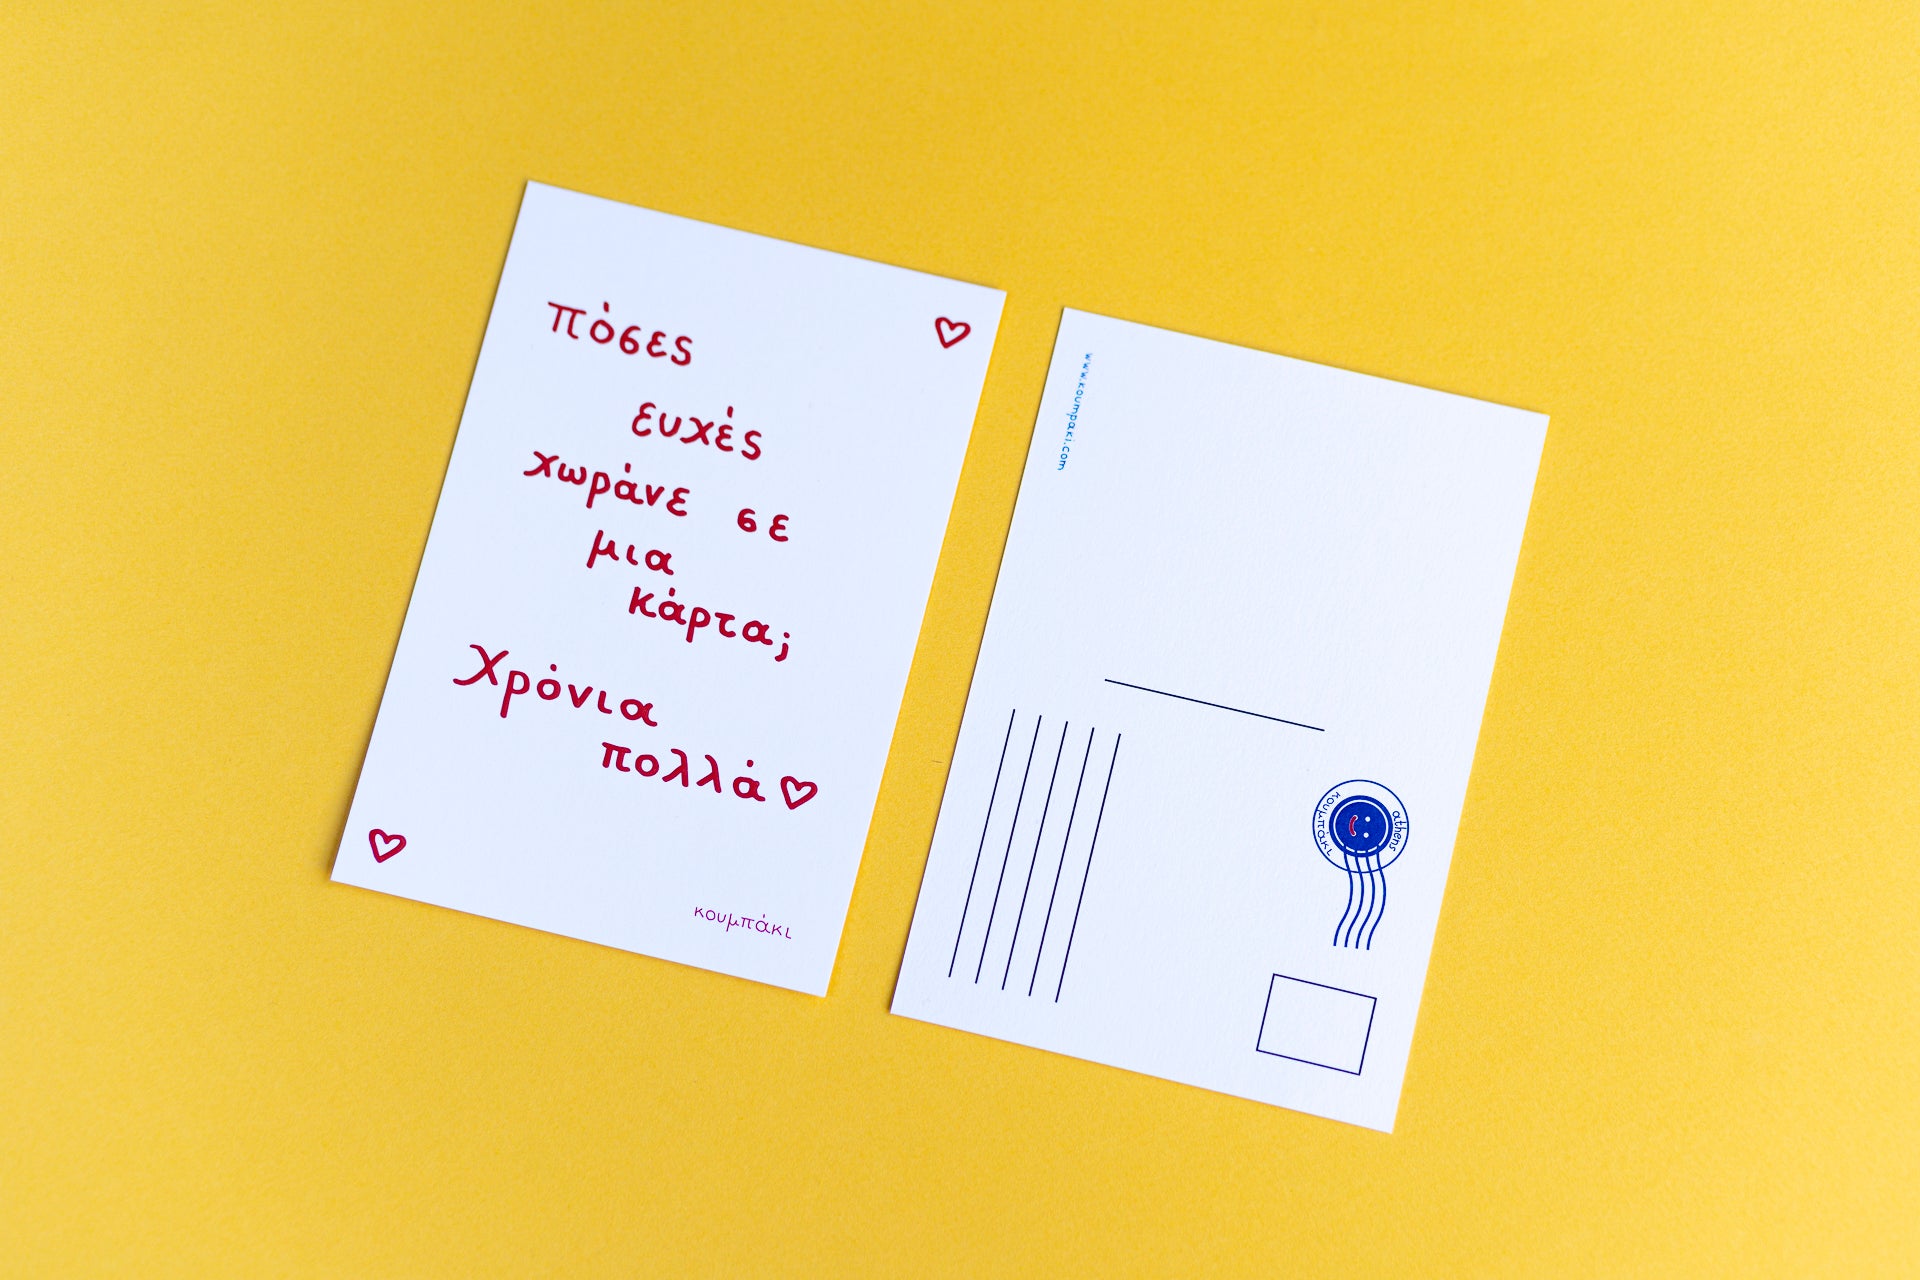 πόσες
ευχές
χωράνε σε
μια
κάρτα;
Χρόνια
πολλά
κουμπάκι
www.koumpaki.com
athens
κουμπάκι